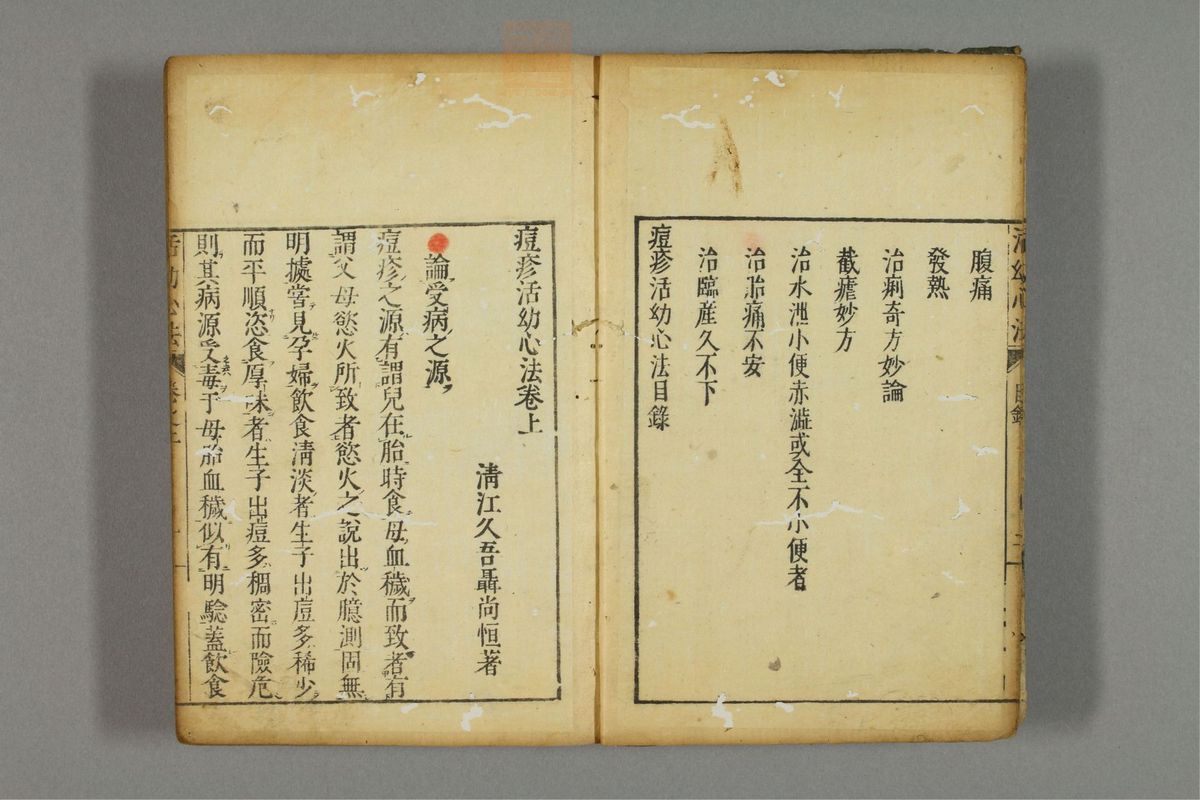 腹痛
發熱
治痢奇方妙論
截瘧妙方
治水瀉小便赤澁或全不小便者
治胎痛不安
治臨產久不下
痘疹活幼心法目錄
痘疹活幼心法卷上
清江久吾聶尚恒著
論受病之源
痘疹之源有謂兒在胎時食母血穢而致者有
謂父母慾火所致者慾火之說出於臆測固無
明據嘗見孕婦飲食清淡者生子出痘多稀少
而平順恣食厚味者生子出痘多稠密而險危
則其病源受毒于母胎血穢似有明驗蓋飲食